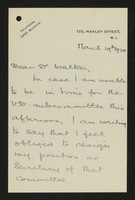 122, HARLEY STREET,
W.1.
March 19th/20
Dear Dr Walker,
In case I am unable
to be in time for the
VD subcommittee this
afternoon, I am writing
to say that I feel
obliged to resign
my position as
Secretary of that
Committee